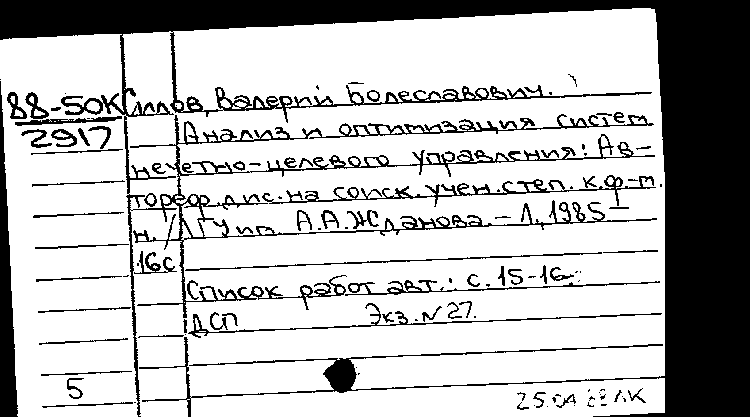 88-50К Силлов, Валерий Болеславович.
2917 Анализ и оптимизация систем
нечетно-целевого управления: Ав-
тореф. дис. на соиск. учен. степ. к.ф-м.
н. /ЛГУ им. А.А.Жданова. - Л, 1985 -
16с
Список работ авт.: с. 15-16.
ДСП Экз. N 27.
5
25.04 88 ЛК